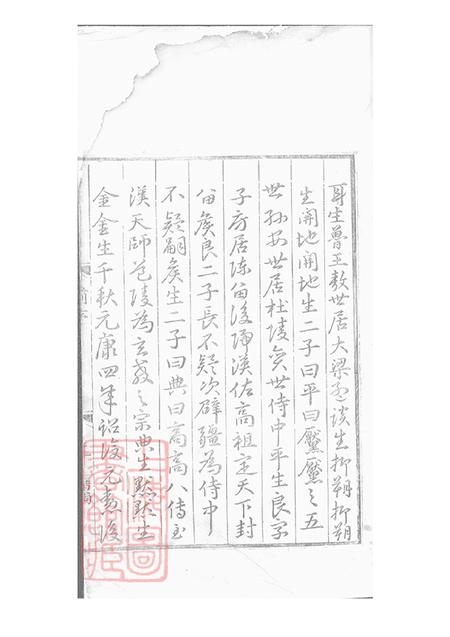 耳生魯王敖世居大梁
生柳朔柳朔
生開地開地生二子曰平曰黶黶之五
世孫安世居杜陵
世侍中平生良字
子房居陳留後歸漢佐高祖定天下封
留侯良二子長不疑次辟疆為侍中
不疑嗣侯生二子曰典曰高高八傳至
漢天師道陵為玄教之宗典生默默生
金金生千秋元康四年詔復元勳後